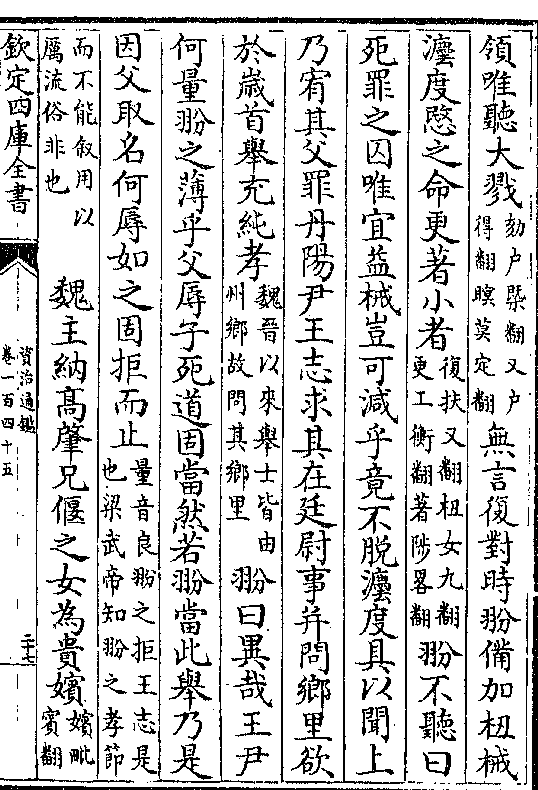 領唯聽大戮劾户槩翻又户得翻瞑莫定翻無言復對時翂備加杻械
灋度愍之命更著小者復扶又翻杻女九翻更工衡翻著陟畧翻翂不聽曰
死罪之囚唯宜益械豈可減乎竟不脱灋度具以聞上
乃宥其父罪丹陽尹王志求其在廷尉事并問鄉里欲
於歲首舉充純孝魏晉以來舉士皆由州鄉故問其鄉里翂曰異哉王尹
何量翂之薄乎父辱子死道固當然若翂當此舉乃是
因父取名何辱如之固拒而止量音良翂之拒王志是也梁武帝知翂之孝節
而不能叙用以厲流俗非也 魏主納高肇兄偃之女為貴嬪嬪毗賓翻
欽定四庫全書
資治通鑑
卷一百四十五
二十七